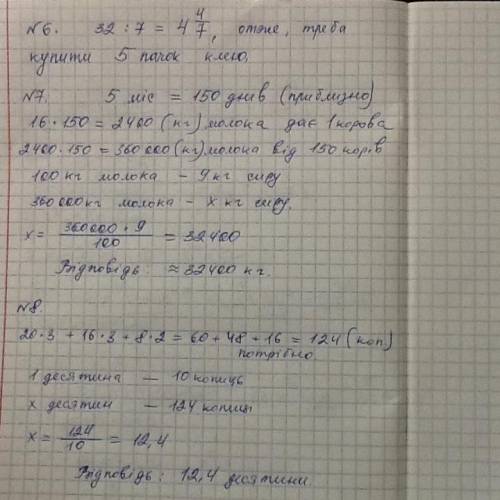 №6. 32 : 7 = 4 4/7, отже, треба
купити 5 пачок клею.
№7. 5 міс = 150 днів (приблизно)
16 · 150 = 2400 (кг) молока дає 1 корова
2400 · 150 = 360 000 (кг) молока від 150 корів
100 кг молока – 9 кг сиру
360 000 кг молока – х кг сиру.
х = 360000 · 9 / 100 = 32400
Відповідь: ≈ 32400 кг.
№8.
20 · 3 + 16 · 3 + 8 · 2 = 60 + 48 + 16 = 124 (коп.)
потрібно
1 десятина — 10 копиць
х десятин — 124 копиці
х = 124 / 10 = 12,4
Відповідь: 12,4 десятини.